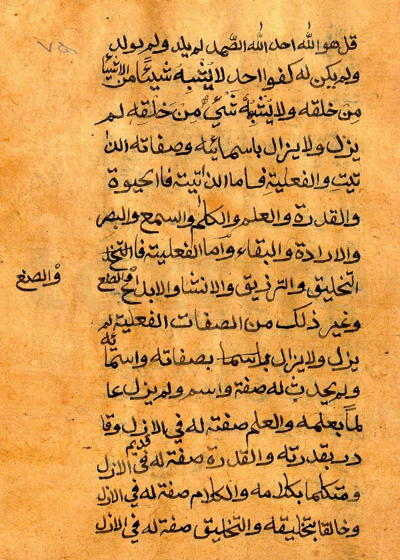 قل هو الله احد الله الصمد لم يلد ولم يولد
ولم يكن له كفوا احد لا يشبه شيئا من الاشيا
من خلقه ولا يشبهه شيئ من خلقه لم
يزل ولا يزال باسمائه وصفاته الذا
تيت والفعلية فاما الذاتية فالحيوة
والقدرة والعلم والكلام والسمع والبصر
والارادة والبقاء واما الفعلية فاالتخ
التخليق والترزيق والانشا والابداع والصنع
والصنع
وغير ذلك من الصفات الفعلية لم
يزل ولا يزال باسما بصفاته واسمائه
ولم يحدث له صفة واسم ولم يزل عا
لما بعلمه والعلم صفته له في الازل وقا
در بقدرته والقدرة صفة له في الازل
قديم
ومتكلما بكلامه والكلام صفة له في الازل
وخالقا بتخليقه والتخليق صفة له في الازل